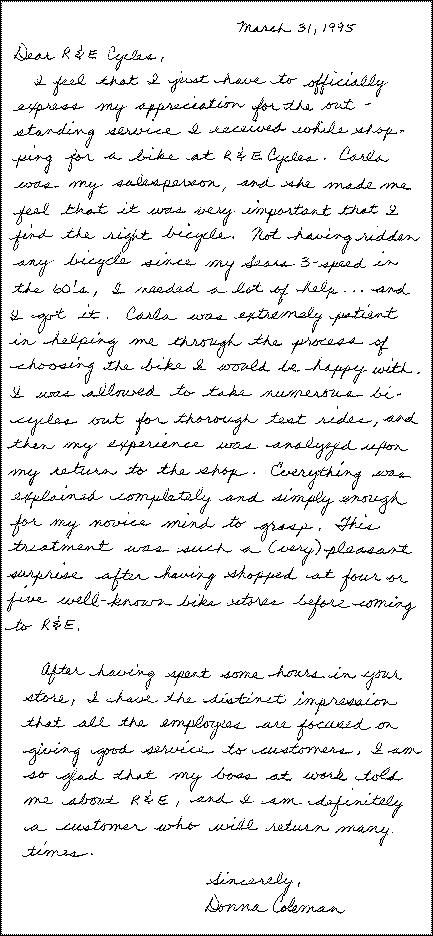 March 31, 1995
Dear R & E Cycles,
I feel that I just have to officially
express my appreciation for the out-
standing service I received while shop-
ping for a bike at R & E Cycles. Carla
was my salesperson, and she made me
feel that it was very important that I
find the right bicycle. Not having ridden
any bicycle since my Sears 3-speed in
the 60's, I needed a lot of help... and
I got it. Carla was extremely patient
in helping me through the process of
choosing the bike I would be happy with.
I was allowed to take numerous bi-
cycles out for thorough test rides, and
then my experience was analyzed upon
my return to the shop. Everything was
explained completely and simply enough
for my novice mind to grasp. This
treatment was such a (very) pleasant
surprise after having shopped at four or
five well-known bike stores before coming
to R & E.
After having spent some hours in your
store, I have the distinct impression
that all the employees are focused on
giving good service to customers. I am
so glad that my boss at work told
me about R & E, and I am definitely
a customer who will return many
times.
Sincerely,
Donna Coleman